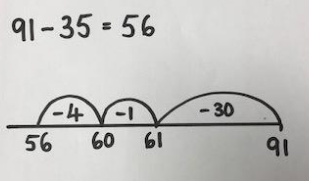 91-35=56
-4 -1 -30
56 60 61 91